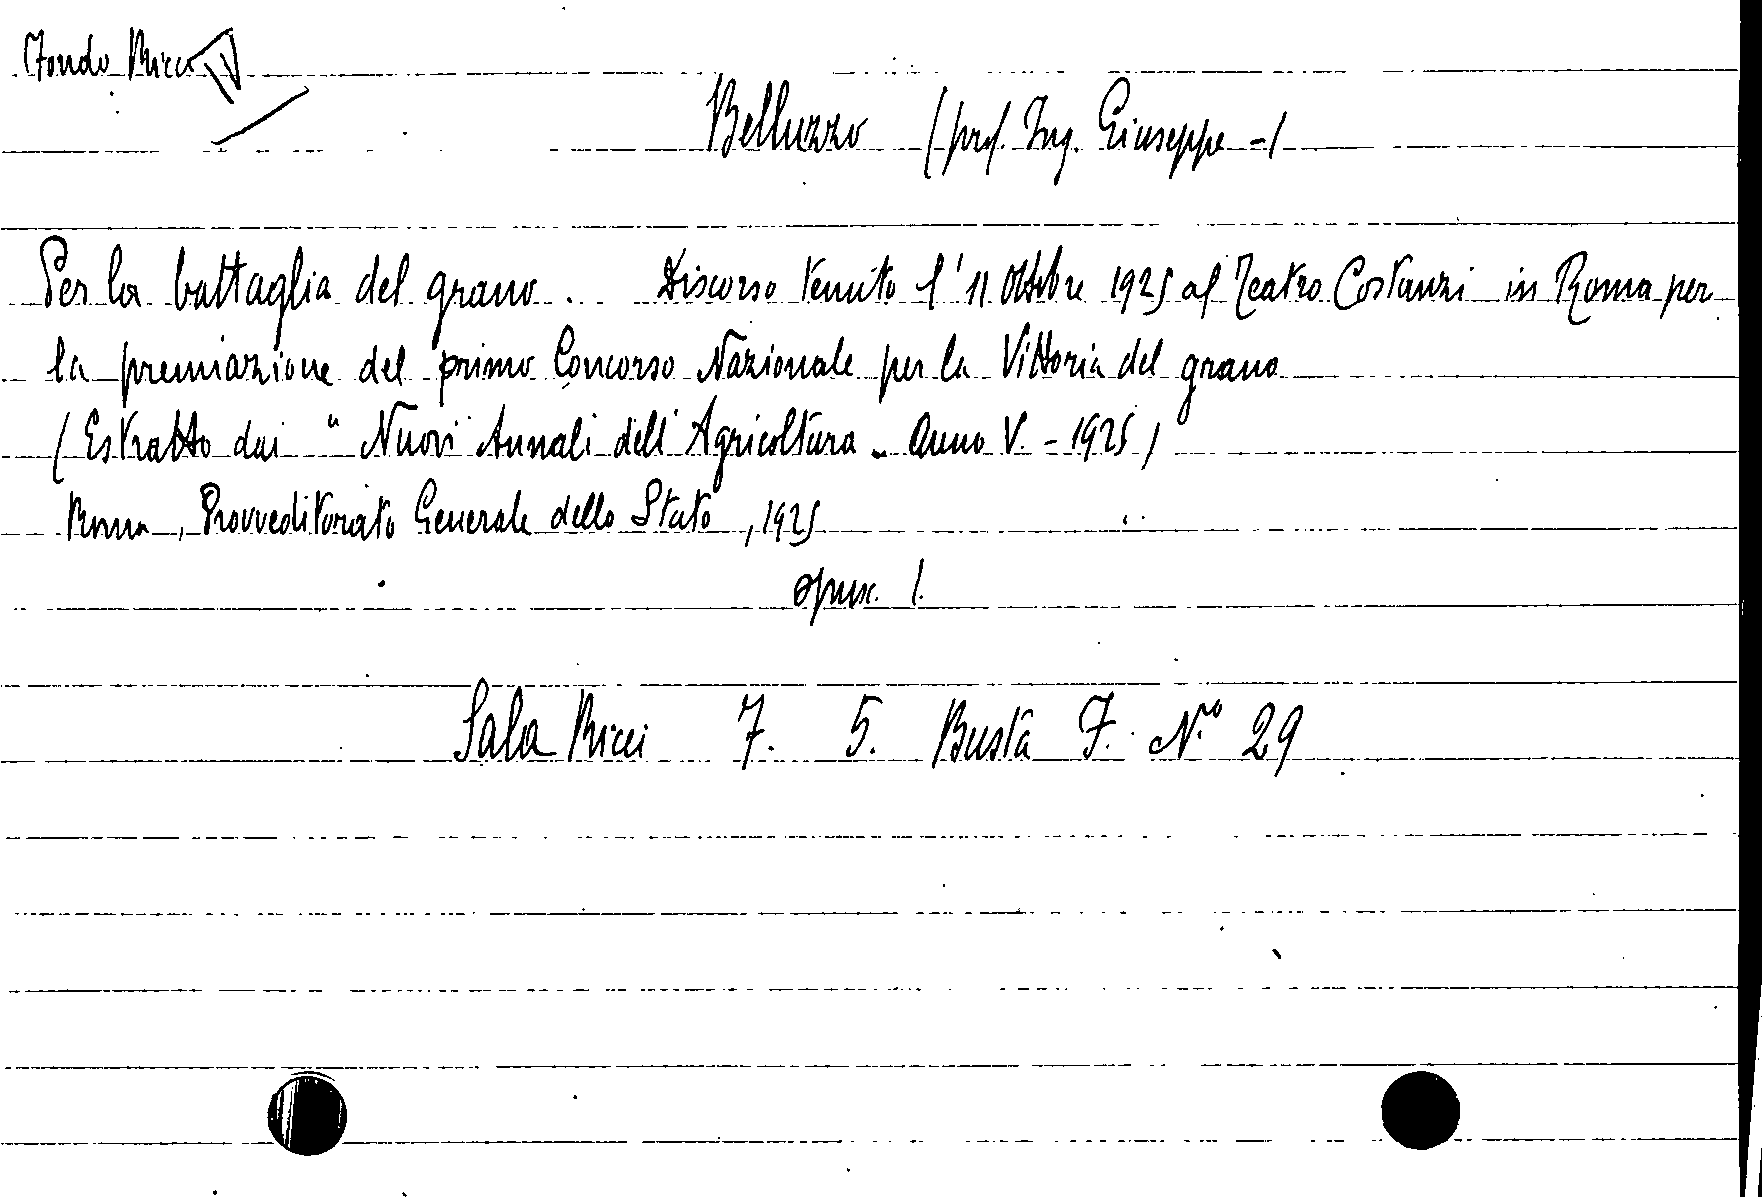 Fondo Ricci IV
Belluzzo (prof. Ing. Giuseppe -)
Per la battaglia del grano .. Discorso tenuto l'11 Ottobre 1925 al Teatro Costanzi in Roma per
la premiazione del primo Concorso Nazionale per la Vittoria del grano
(Estratto dai " Nuovi Annali dell'Agricoltura „ Anno V. - 1925)
Roma, Provveditorato Generale dello Stato, 1925
opusc. 1.
Sala Ricci 7. 5. Busta F. N.ro 29